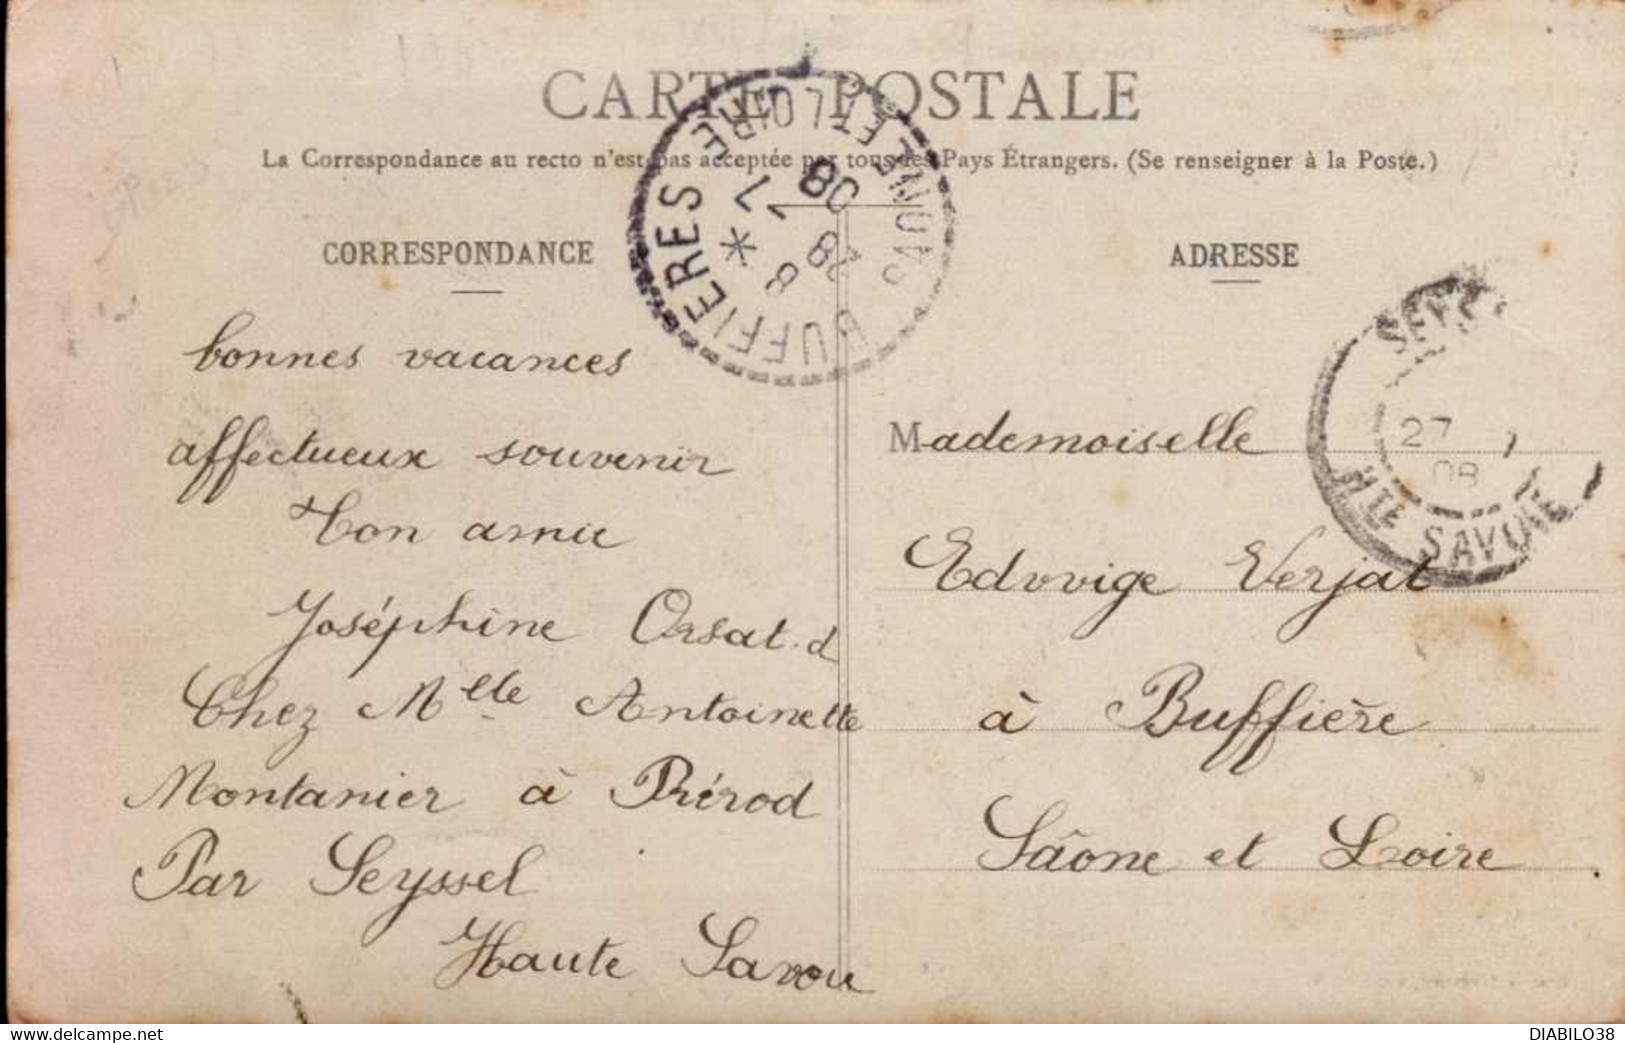 CARTE POSTALE
La Correspondance au recto n'est pas acceptée par tous les Pays Étrangers. (Se renseigner à la Poste.)
BUFFIERES
SAONE ET LOIRE
8 * 7
28 7
08
CORRESPONDANCE
bonnes vacances
affectueux souvenir
Ton amie
Joséphine Orsat.d
Chez Mlle Antoinette
Montanier à Prérod
Par Seyssel
Haute Savoie
ADRESSE
27 7
08
HTE SAVOIE
Mademoiselle
Edwige Verjat
à Buffière
Sâone et Loire
delcampe.net
DIABILO38